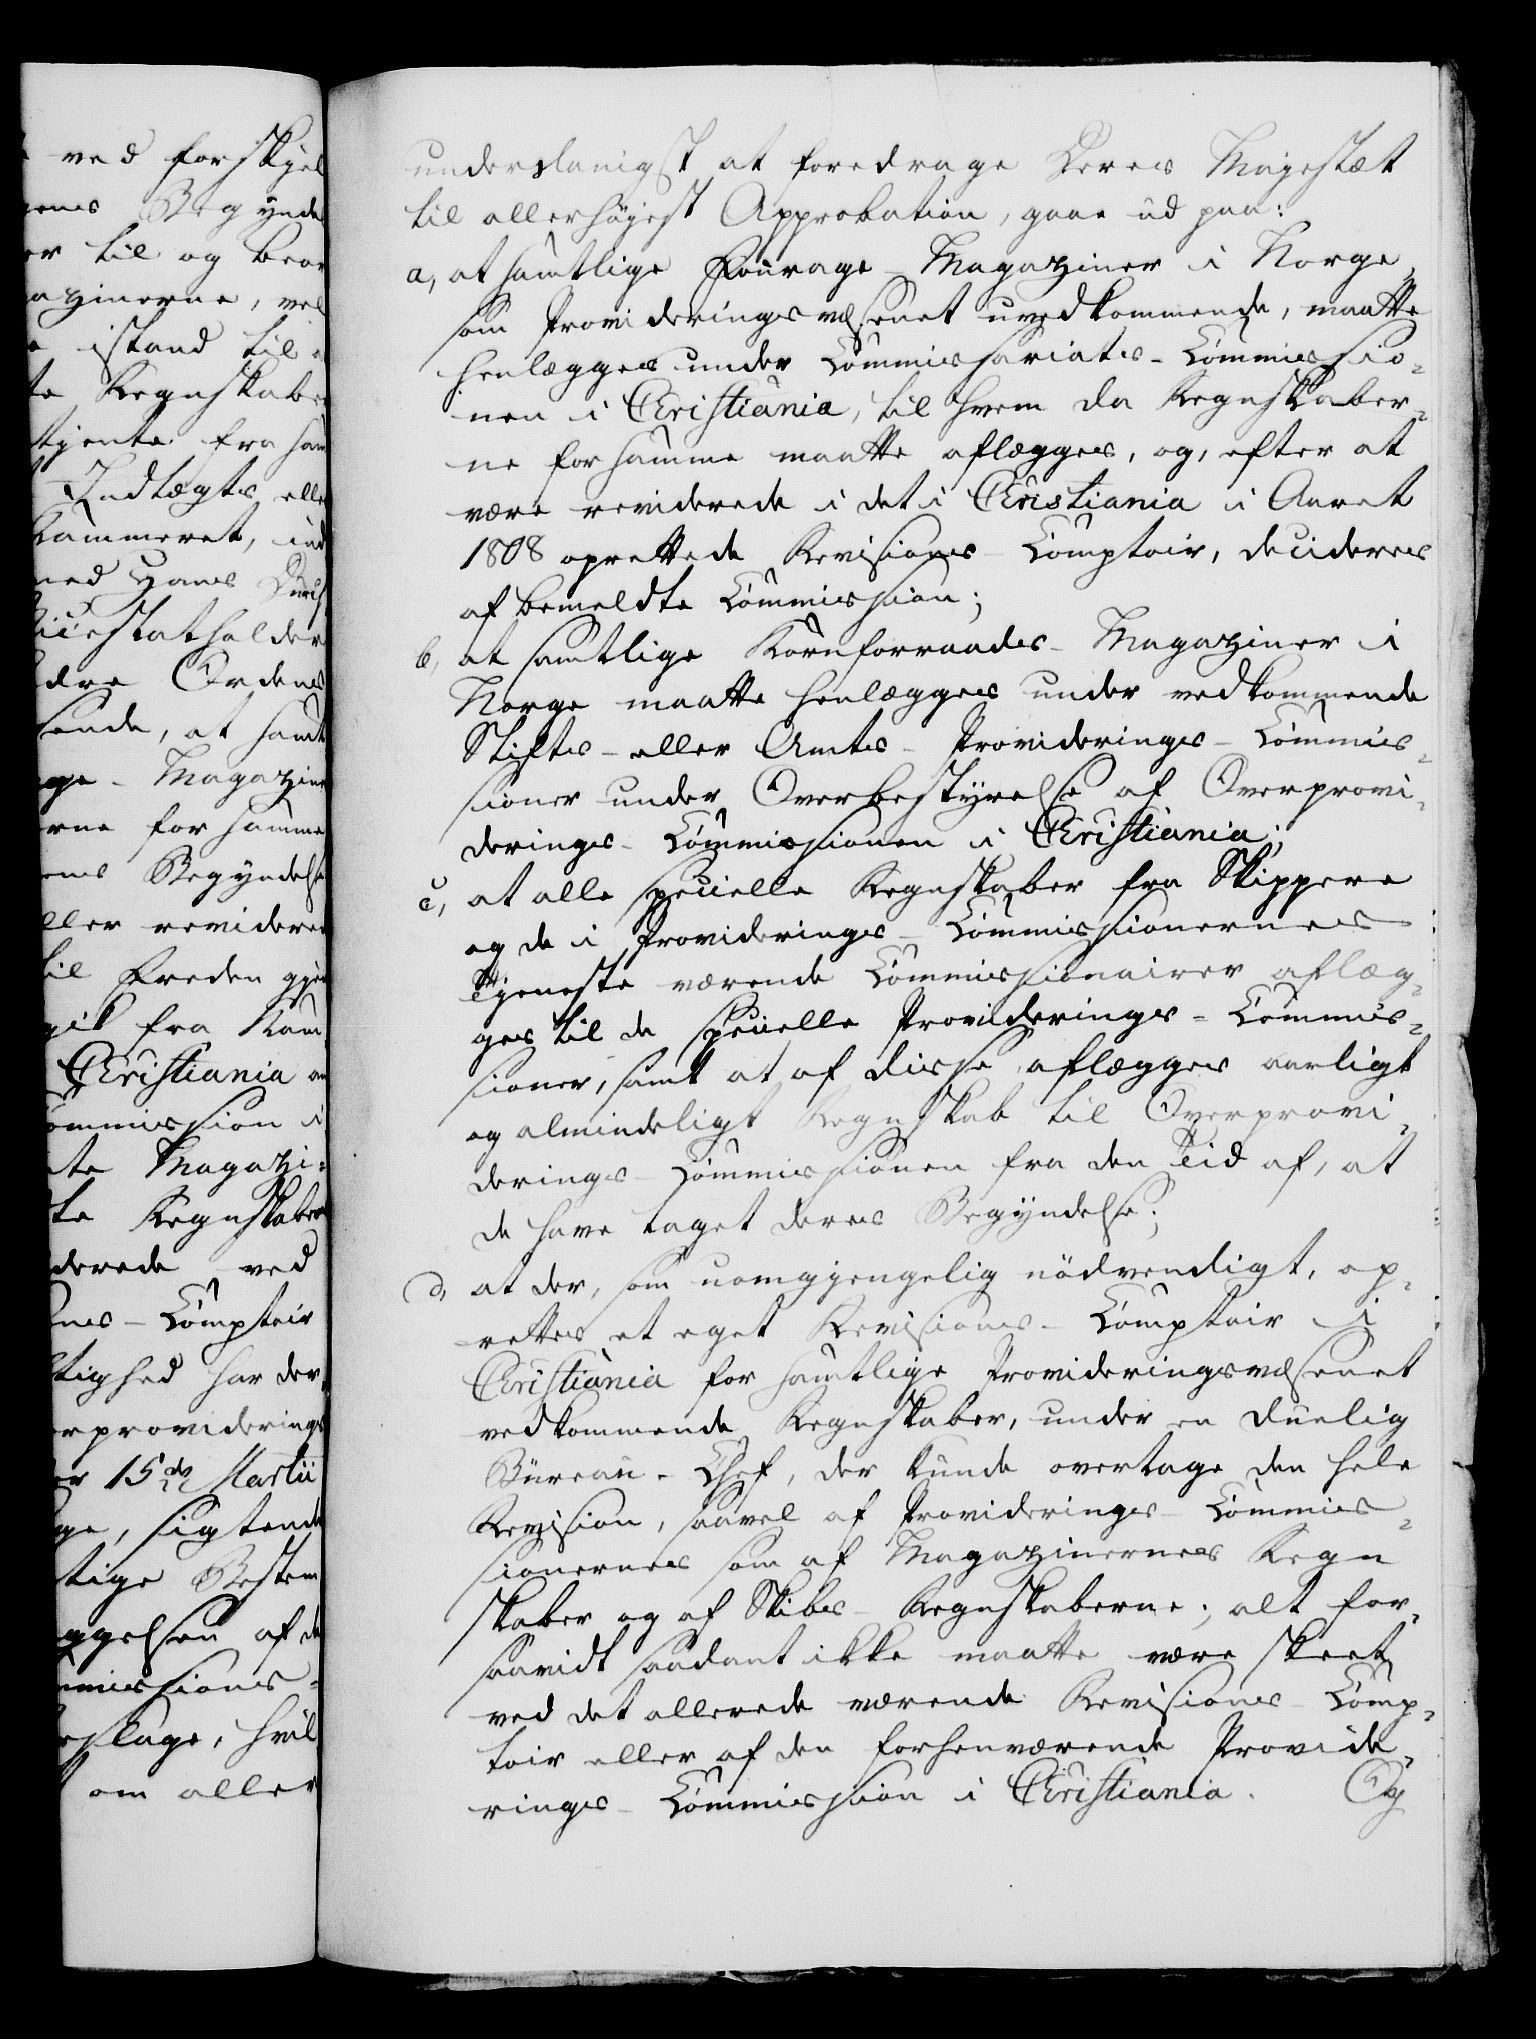 ved forskjel
genes Begyndel
er til og beor
azinerne, vel
istand til a
te Regnskabe
tjente fra ham
Indtægts elle
Kammeret, ind
med Hans Durch
Vicestatholder
dre Ordens
sende, at samt
ge - Magazine
rne for samme
ens Begyndelse
ller revidere
til Freden
gik fra Kam
Christiania
ommission i
te Magazi=
te Regnskaber
derede ved
nes - Comptoir
tighed har der
erproviderings
er 15de Martii
ge, sigtende
tige Bestem
ggelsen af de
mmissions=
slage, hvil
om aller
underdanigst at foredrage Deres Majestæt
til allerhøjest Approbation, gaae ud paa:
a, at samtlige Fourage-Magaziner i Norge,
som Provideringsvæsenet uvedkommende, maatte
henlægges under Commissariats-Commissio=
nen i Christiania, til hvem da Regnskaber=
ne for samme maatte aflægges, og, efter at
være reviderede i det i Christiania i Aaret
1808 oprettede Revisions-Comptoir, decideres
af bemeldte Commission;
b, at samtlige Kornforraads-Magaziner i
Norge maatte henlægges under vedkommende
Stifts- eller Amts-Providerings-Commis=
sioner under Overbestyrelse af Overprovi=
derings-Commissionen i Christiania;
c, at alle specielle Regnskaber fra Skippere
og de i Providerings-Commissionernes
Tjeneste værende Commissionairer aflæg=
ges til de specielle Providerings-Commis=
sioner, samt at af disse aflægges aarligt
og almindeligt Regnskab til Overprovi=
derings-Commissionen fra den Tid af, at
de have taget deres Begyndelse;
d, at der, som uomgjengelig nödvendigt, op=
rettes et eget Revisions-Comptoir i
Christiania for samtlige Provideringsvæsenet
vedkommende Regnskaber, under en duelig
Büreau-Chef, der kunde overtage den hele
Revision, saavel af Providerings-Commis=
sionernes som af Magazinernes Regn
skaber og af Skibs-Regnskaberne; alt for=
saavidt saadant ikke maatte være skeet
ved det allerede værende Revisions-Comp=
toir eller af den forhenværende Provide=
rings-Commission i Christiania. Og